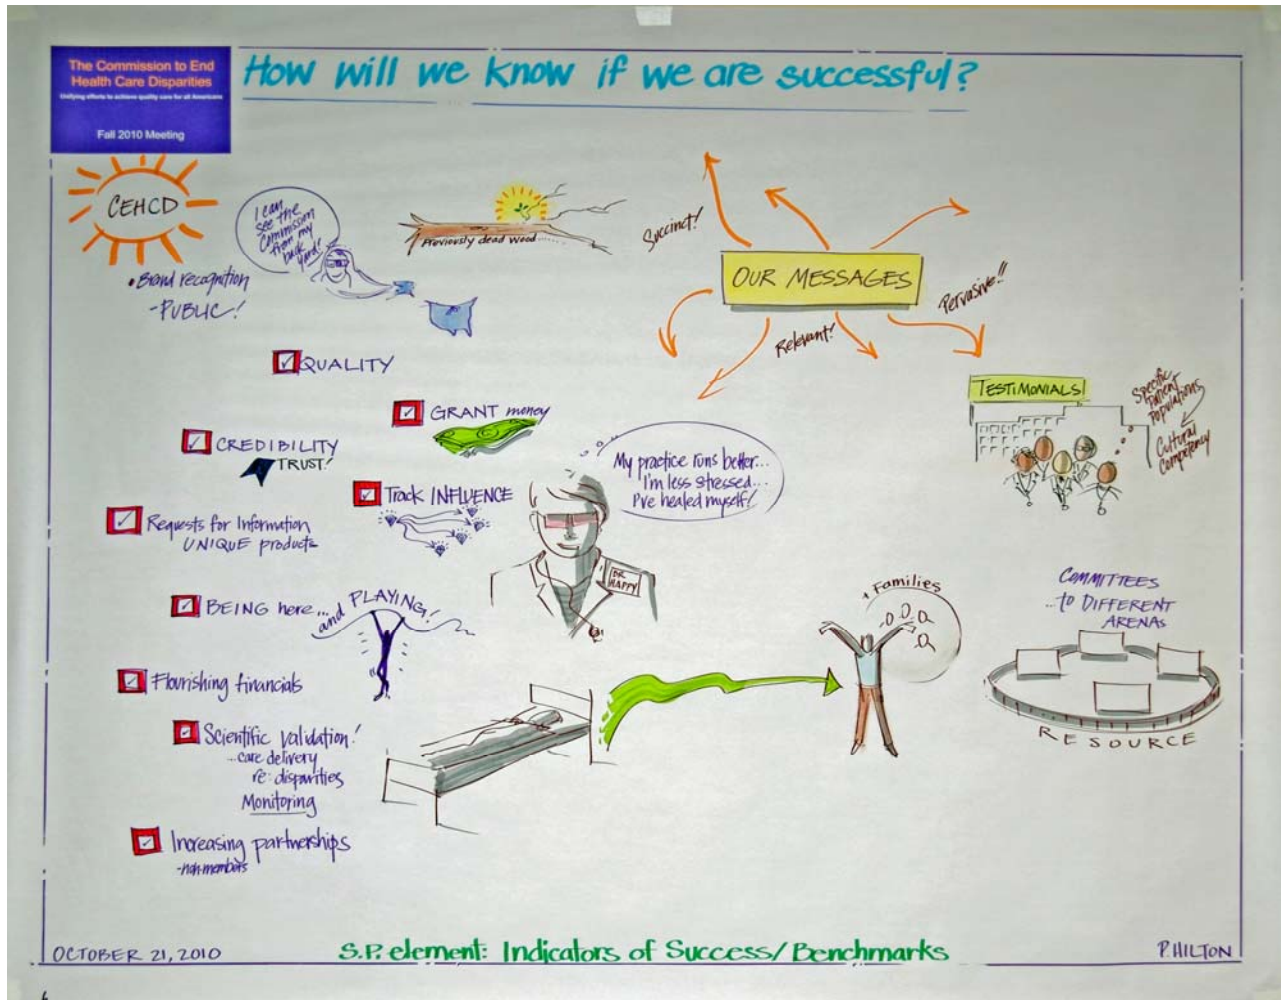 The Commission to End
Health Care Disparities
Unifying efforts to achieve quality care for all Americans
Fall 2010 Meeting
How will we know if we are successful?
CEHCD
• Brand recognition
- PUBLIC!
I can
see the
Commission
from my
back
yard!
Previously dead wood......
Succinct!
OUR MESSAGES
Pervasive!!
Relevant!
QUALITY
GRANT money
CREDIBILITY
TRUST!
Track INFLUENCE
Requests for Information
UNIQUE products
BEING here...
and PLAYING!
Flourishing financials
Scientific validation!
...care delivery
re: disparities
Monitoring
Increasing partnerships
-non-members
My practice runs better...
I'm less stressed...
I've healed myself!
DR
HAPPY
TESTIMONIALS!
Specific
Patient
Populations
Cultural
Competency
+ Families
COMMITTEES
...to DIFFERENT
ARENAS
RESOURCE
OCTOBER 21, 2010
S.P. element: Indicators of Success/Benchmarks
P. HILTON